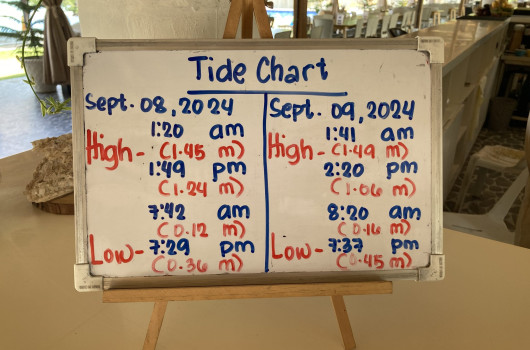 Tide Chart
Sept. 08, 2024
1:20 am
High - (1.45 m)
1:49 pm
(1.24 m)
7:42 am
(0.12 m)
Low - 7:29 pm
(0.36 m)
Sept. 09, 2024
1:41 am
High - (1.49 m)
2:20 pm
(1.06 m)
8:20 am
(0.16 m)
Low - 7:37 pm
(0.45 m)